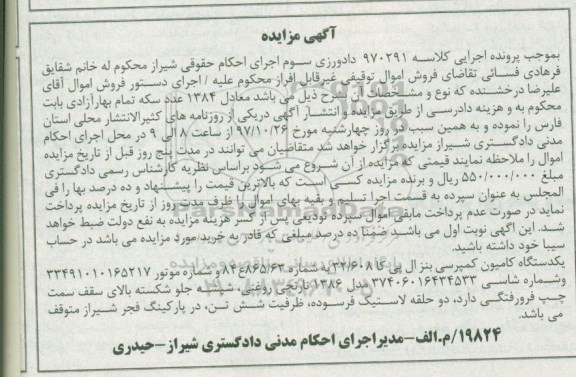 آگهی مزایده
بموجب پرونده اجرایی کلاسه ۹۷۰۲۹۱ دادورزی سوم اجرای احکام حقوقی شیراز محکوم له خانم شقایق
فرهادی فسائی تقاضای فروش اموال توقیفی غیرقابل افراز محکوم علیه / اجرای دستور فروش اموال آقای
علیرضا درخشنده که نوع و مشخصات آن بشرح ذیل می باشد معادل ۱۳۸۴ عدد سکه تمام بهارآزادی بابت
محکوم به و هزینه دادرسی از طریق مزایده و انتشار آگهی دریکی از روزنامه های کثیرالانتشار محلی استان
فارس را نموده و به همین سبب در روز چهارشنبه مورخ ۹۷/۱۰/۲۶ از ساعت ۸ الی ۹ در محل اجرای احکام
مدنی دادگستری شیراز مزایده برگزار خواهد شد متقاضیان می توانند در مدت پنج روز قبل از تاریخ مزایده
اموال را ملاحظه نمایند قیمتی که مزایده از آن شروع می شود براساس نظریه کارشناس رسمی دادگستری
مبلغ ۵۵۰/۰۰۰/۰۰۰ ریال و برنده مزایده کسی است که بالاترین قیمت را پیشنهاد و ده درصد بها را فی
المجلس به عنوان سپرده به قسمت اجرا تسلیم و بقیه بهای اموال را ظرف مدت روز از تاریخ مزایده پرداخت
نماید در صورت عدم پرداخت مابقی اموال سپرده تودیعی پس از کسر هزینه مزایده به نفع دولت ضبط خواهد
شد. این آگهی نوبت اول می باشد ضمنا ده درصد مبلغی که قادر به خرید مورد مزایده می باشد در حساب
سیبا خود داشته باشید.
یکدستگاه کامیون کمپرسی بنز ال پی کا ۳۲/۶۰۸ به شماره ۸۴ع۸۶۵/۶۳ و شماره موتور ۳۳۴۹۱۰۱۰۱۶۵۲۱۷
وشماره شاسی ۳۷۴۰۶۰۱۶۴۳۴۵۳۳ مدل ۱۳۸۶ نارنجی روغنی، شیشه جلو شکسته بالای سقف سمت
چپ فرورفتگی دارد، دو حلقه لاستیک فرسوده، ظرفیت شش تن، در پارکینگ فجر شیراز متوقف
می باشد.
۱۹۸۲۴/م.الف-مدیراجرای احکام مدنی دادگستری شیراز-حیدری